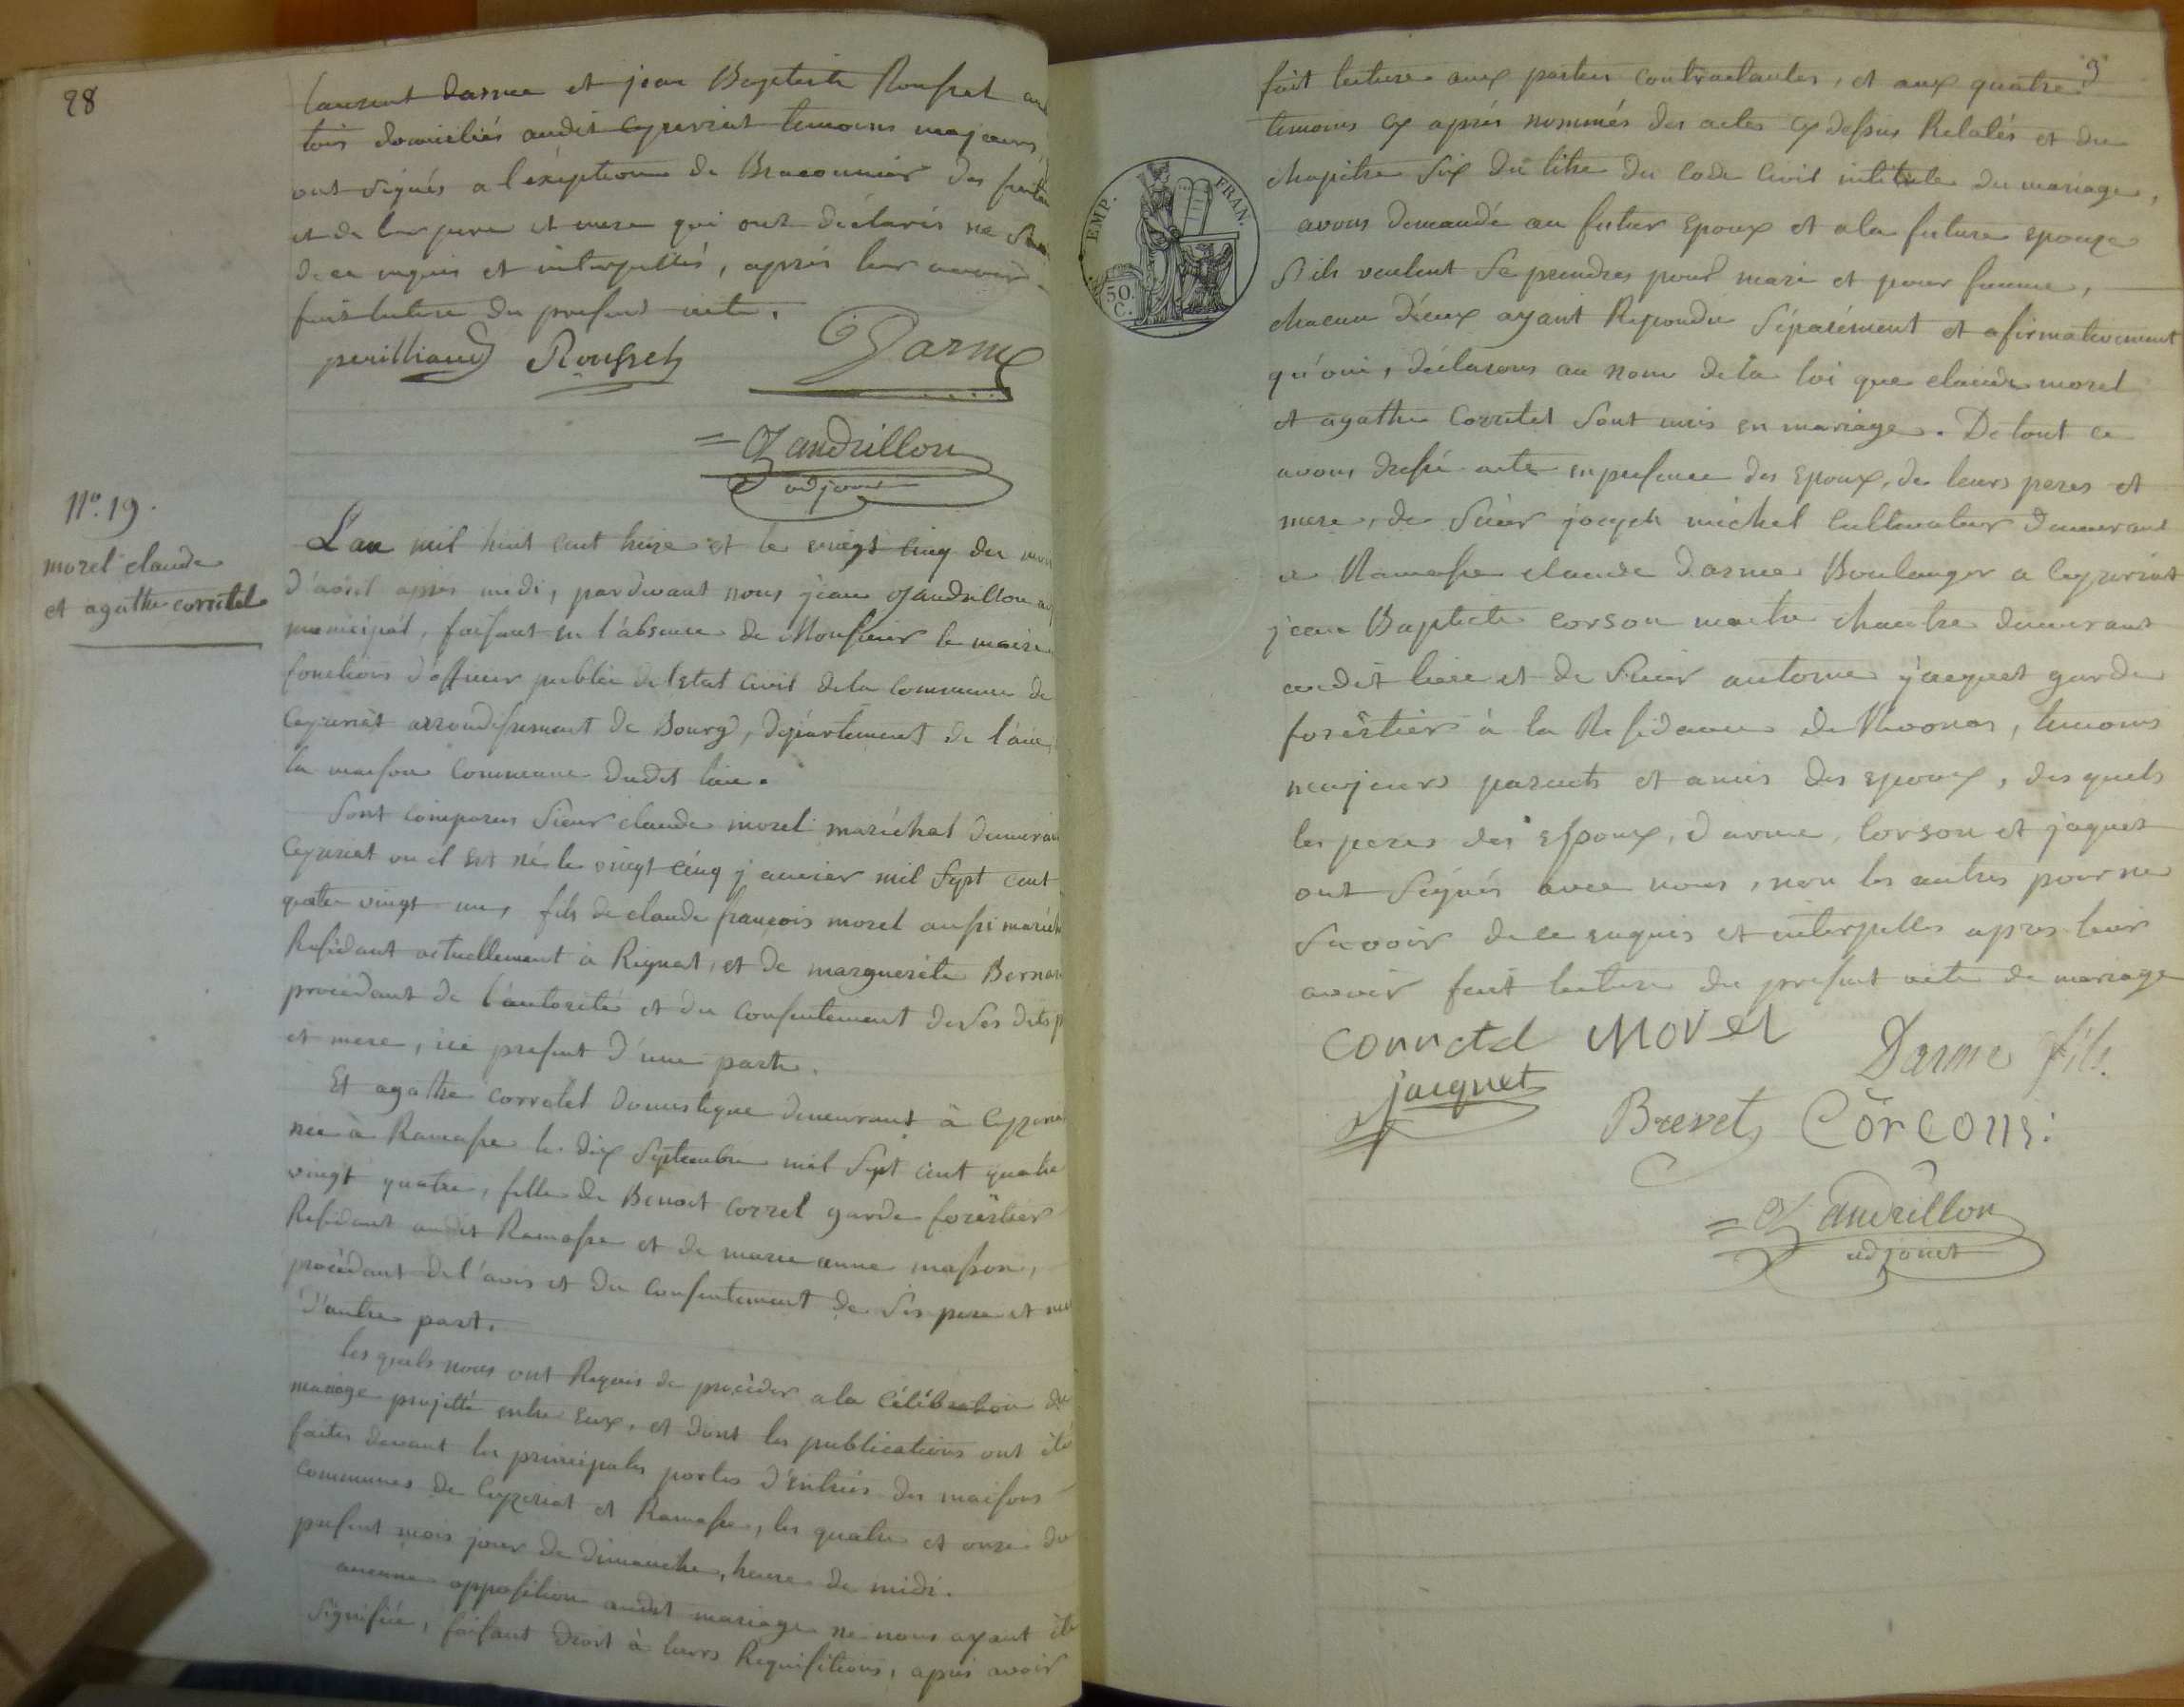 28
laurent darme et jean Baptiste Rousset
tous domiciliés audit Ceyzeriat temoins majeurs
ont signés a l'exeption de Braconnier des
et de leur pere et mere qui ont déclarés ne
de ce enquis et interpellés, après leur avoir
fait lecture du present acte.
perilliand Rousset Darme
= Gandrillon
adjoint
N.º 19.
morel claude
et agathe corretel
L'an mil huit cent treize et le vingt cinq du mois
d'avril après midi, pardevant nous jean Gandrillon
municipal, faisant en l'absence de Monsieur le maire
fonctions d'officier public de l'etat civil de la commune de
Ceyzeriat arrondissement de Bourg, département de l'ain,
la maison commune dudit lieu.
Sont comparus Sieur claude morel maréchal demeurant
Ceyzeriat ou il est né le vingt cinq janvier mil sept cent
quatre vingt un, fils de claude françois morel aussi maréchal
Residant actuellement à Rignat, et de marguerite
procédant de l'autorité et du consentement de ses dits
et mere, ici present d'une part.
Et agathe corretel domestique demeurant à
née à Ramasse le dix septembre mil sept cent quatre
vingt quatre, fille de Benoit corret garde forêstier
Residant audit Ramasse et de marie anne masson,
procédant de l'avis et du consentement de ses pere et
d'autre part.
les quels nous ont Requis de procéder a la célébration du
mariage projetté entre eux, et dont les publications ont été
faites devant les principales portes d'entrées des maisons
communes de Ceyzeriat et Ramasse, les quatre et onze du
present mois jour de dimanche, heure de midi.
aucune opposition audit mariage ne nous ayant été
Signifiée, faisant droit à leurs Requisitions, après avoir
EMP. FRAN.
50.
C.
fait lecture aux parties contractantes, et aux quatre
temoins cy après nommés des actes cy dessus Relatés et du
chapitre six du titre du code civil intitule du mariage,
avons demandé au futur epoux et a la future epouze
s'ils veulent se prendres pour mari et pour femme,
chacun d'eux ayant Repondu séparément et afirmativement
qu'oui, déclarons au nom de la loi que claude morel
et agathe corretel sont unis en mariage. De tout ce
avons dressé acte en presence des epoux, de leurs peres et
mere, de sieur joseph michel cultivateur demeurant
a Ramasse claude darme Boulanger a Ceyzeriat
jean Baptiste corson maitre chantre demeurant
audit lieu et de sieur antoine jacquet garde
forêstier à la Residance de, temoins
majeurs parents et amis des epoux, des quels
les peres des epoux, darme, corson et jaquet
ont signés avec nous, non les autres pour ne
savoir de ce enquis et interpellés apres leur
avoir fait lecture du present acte de mariage
corretel Morel
Darme fils.
jacquet
Brevet Corcon:
= Gandrillon
adjoint